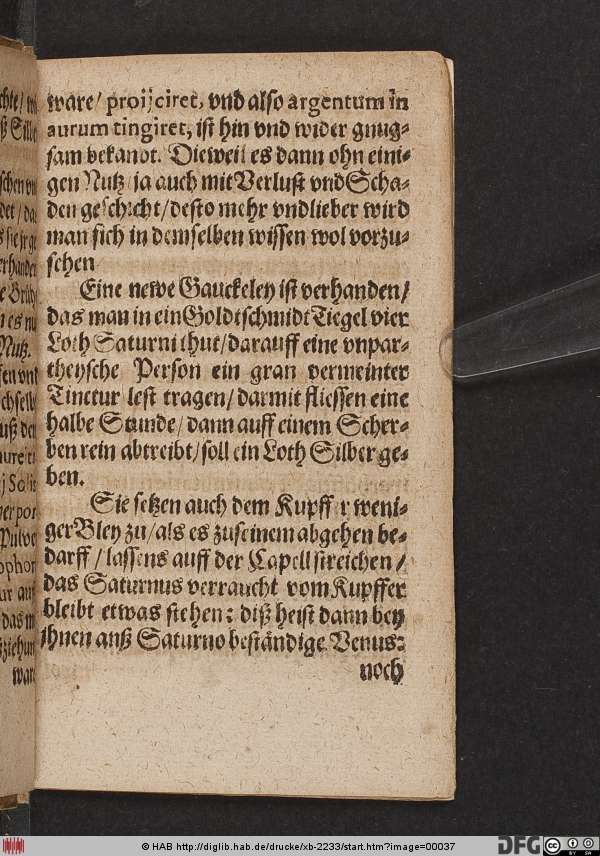 ware/ proijciret, vnd also argentum in
aurum tingiret, ist hin vnd wider gnug-
sam bekandt. Dieweil es dann ohn eini-
gen Nutz/ ja auch mit Verlust vnd Scha-
den geschicht/ desto mehr vnd lieber wird
man sich in demselben wissen wol vorzu-
sehen
Eine newe Gauckeley ist verhanden/
das man in ein Goldtschmidt Tiegel vier
Loth Saturni thut/ darauff eine vnpar-
theysche Person ein gran vermeinter
Tinctur lest tragen/ darmit fliessen eine
halbe Stunde/ dann auff einem Scher-
ben rein abtreibt/ soll ein Loth Silber ge-
ben.
Sie setzen auch dem Kupffer weni-
ger Bley zu/ als es zu seinem abgehen be-
darff/ lassens auff der Capell streichen/
das Saturnus verraucht vom Kupffer
bleibt etwas stehen: diß heist dann bey
ihnen auß Saturno beständige Venus:
noch
© HAB http://diglib.hab.de/drucke/xb-2233/start.htm?image=00037
DFG
BY SA